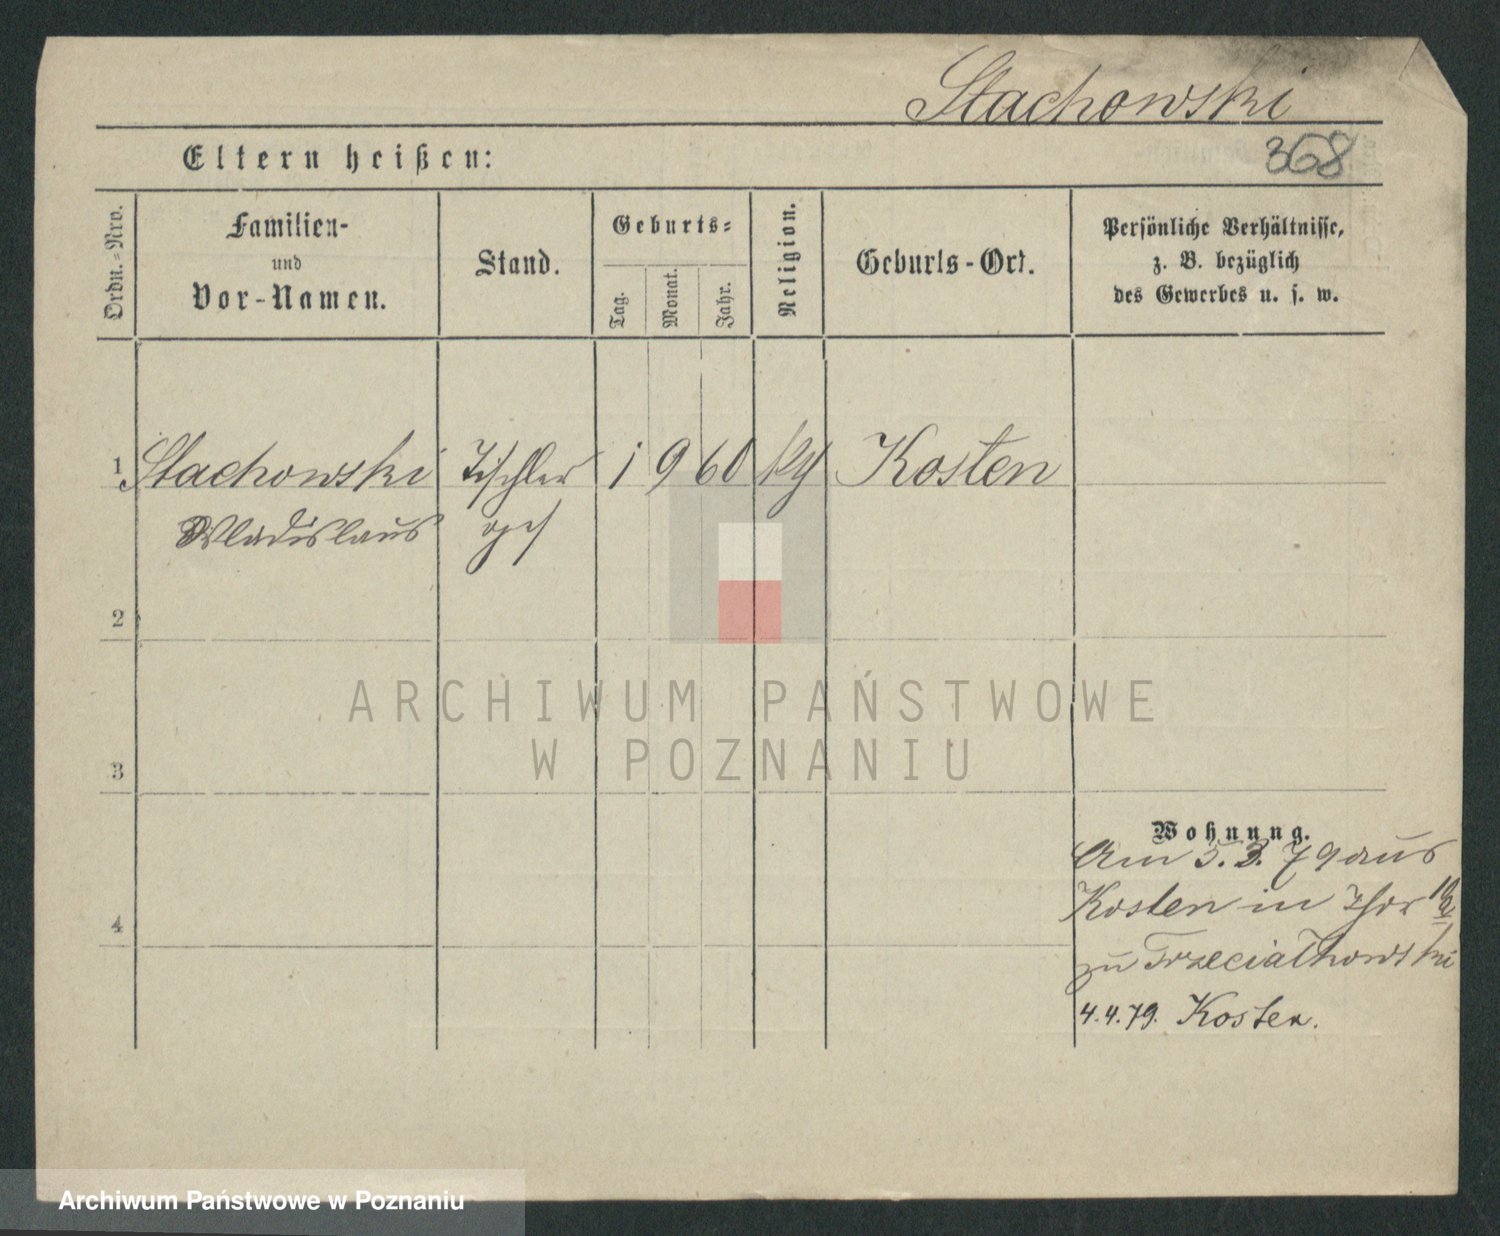 Stachowski
368
Eltern heißen:
Ordn.-Nro.
Familien-
und
Vor-Namen.
Stand.
Geburts-
Tag.
Monat.
Jahr.
Religion.
Geburts-Ort.
Persönliche Verhältnisse,
z. B. bezüglich
des Gewerbes u. s. w.
1 Stachowski Tischler 1 9 60 Kosten
Wladislaus
2
3
4
Wohnung.
Am 5.3.79 aus
Kosten in
zu Trzeciakowski
4.4.79. Kosten.
ARCHIWUM PAŃSTWOWE
W POZNANIU
Archiwum Państwowe w Poznaniu